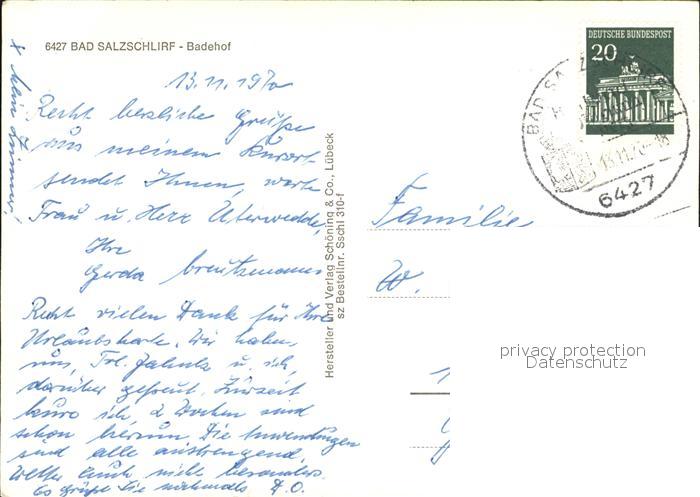 6427 BAD SALZSCHLIRF - Badehof
13.11.1970
Recht herzliche Grüße
aus meinem Kurort
sendet Ihnen, werte
Frau u. Herr Uterwedde,
Ihre
Gerda
Recht vielen Dank für Ihre
Urlaubskarte. Wir haben
uns, Frl. u. ich,
darüber gefreut. Zurzeit
kure ich, 2 Wochen sind
schon herum. Die Anwendungen
sind alle anstrengend,
Wetter auch nicht besonders.
Es grüßt Sie nochmals D.O.
x Mein Zimmer!
Hersteller und Verlag Schöning & Co., Lübeck
sz Bestellnr. Sschl 310-f
DEUTSCHE BUNDESPOST
20
BAD SALZSCHLIRF
13.11.70-18
6427
Familie
W.
privacy protection
Datenschutz